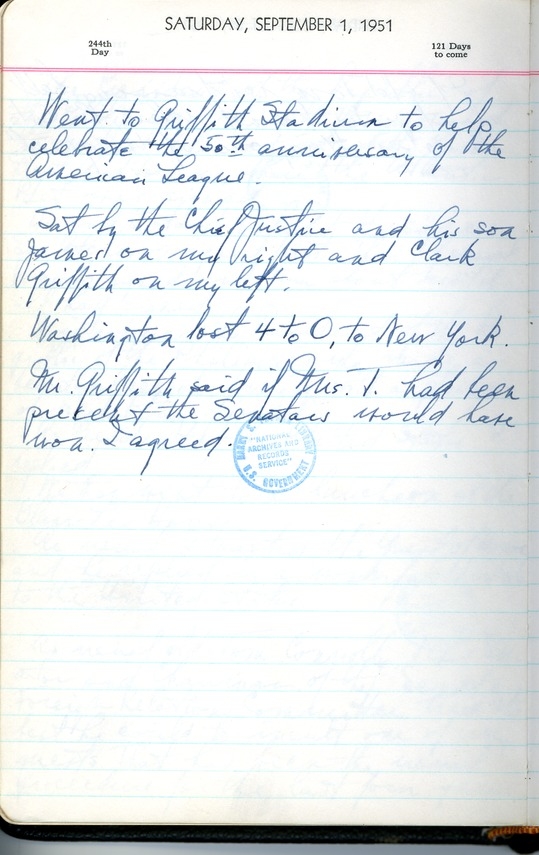 SATURDAY, SEPTEMBER 1, 1951
244th
Day
121 Days
to come
Went to Griffith Stadium to help
celebrate the 50th anniversary of the
American League.
Sat by the Chief Justice and his son
James on my right and Clark
Griffith on my left.
Washington lost 4 to 0, to New York.
Mr. Griffith said if Mrs. T. had been
present the Senators would have
won. I agreed.
HARRY S.
LIBRARY
"NATIONAL
ARCHIVES AND
RECORDS
SERVICE"
U.S. GOVERNMENT